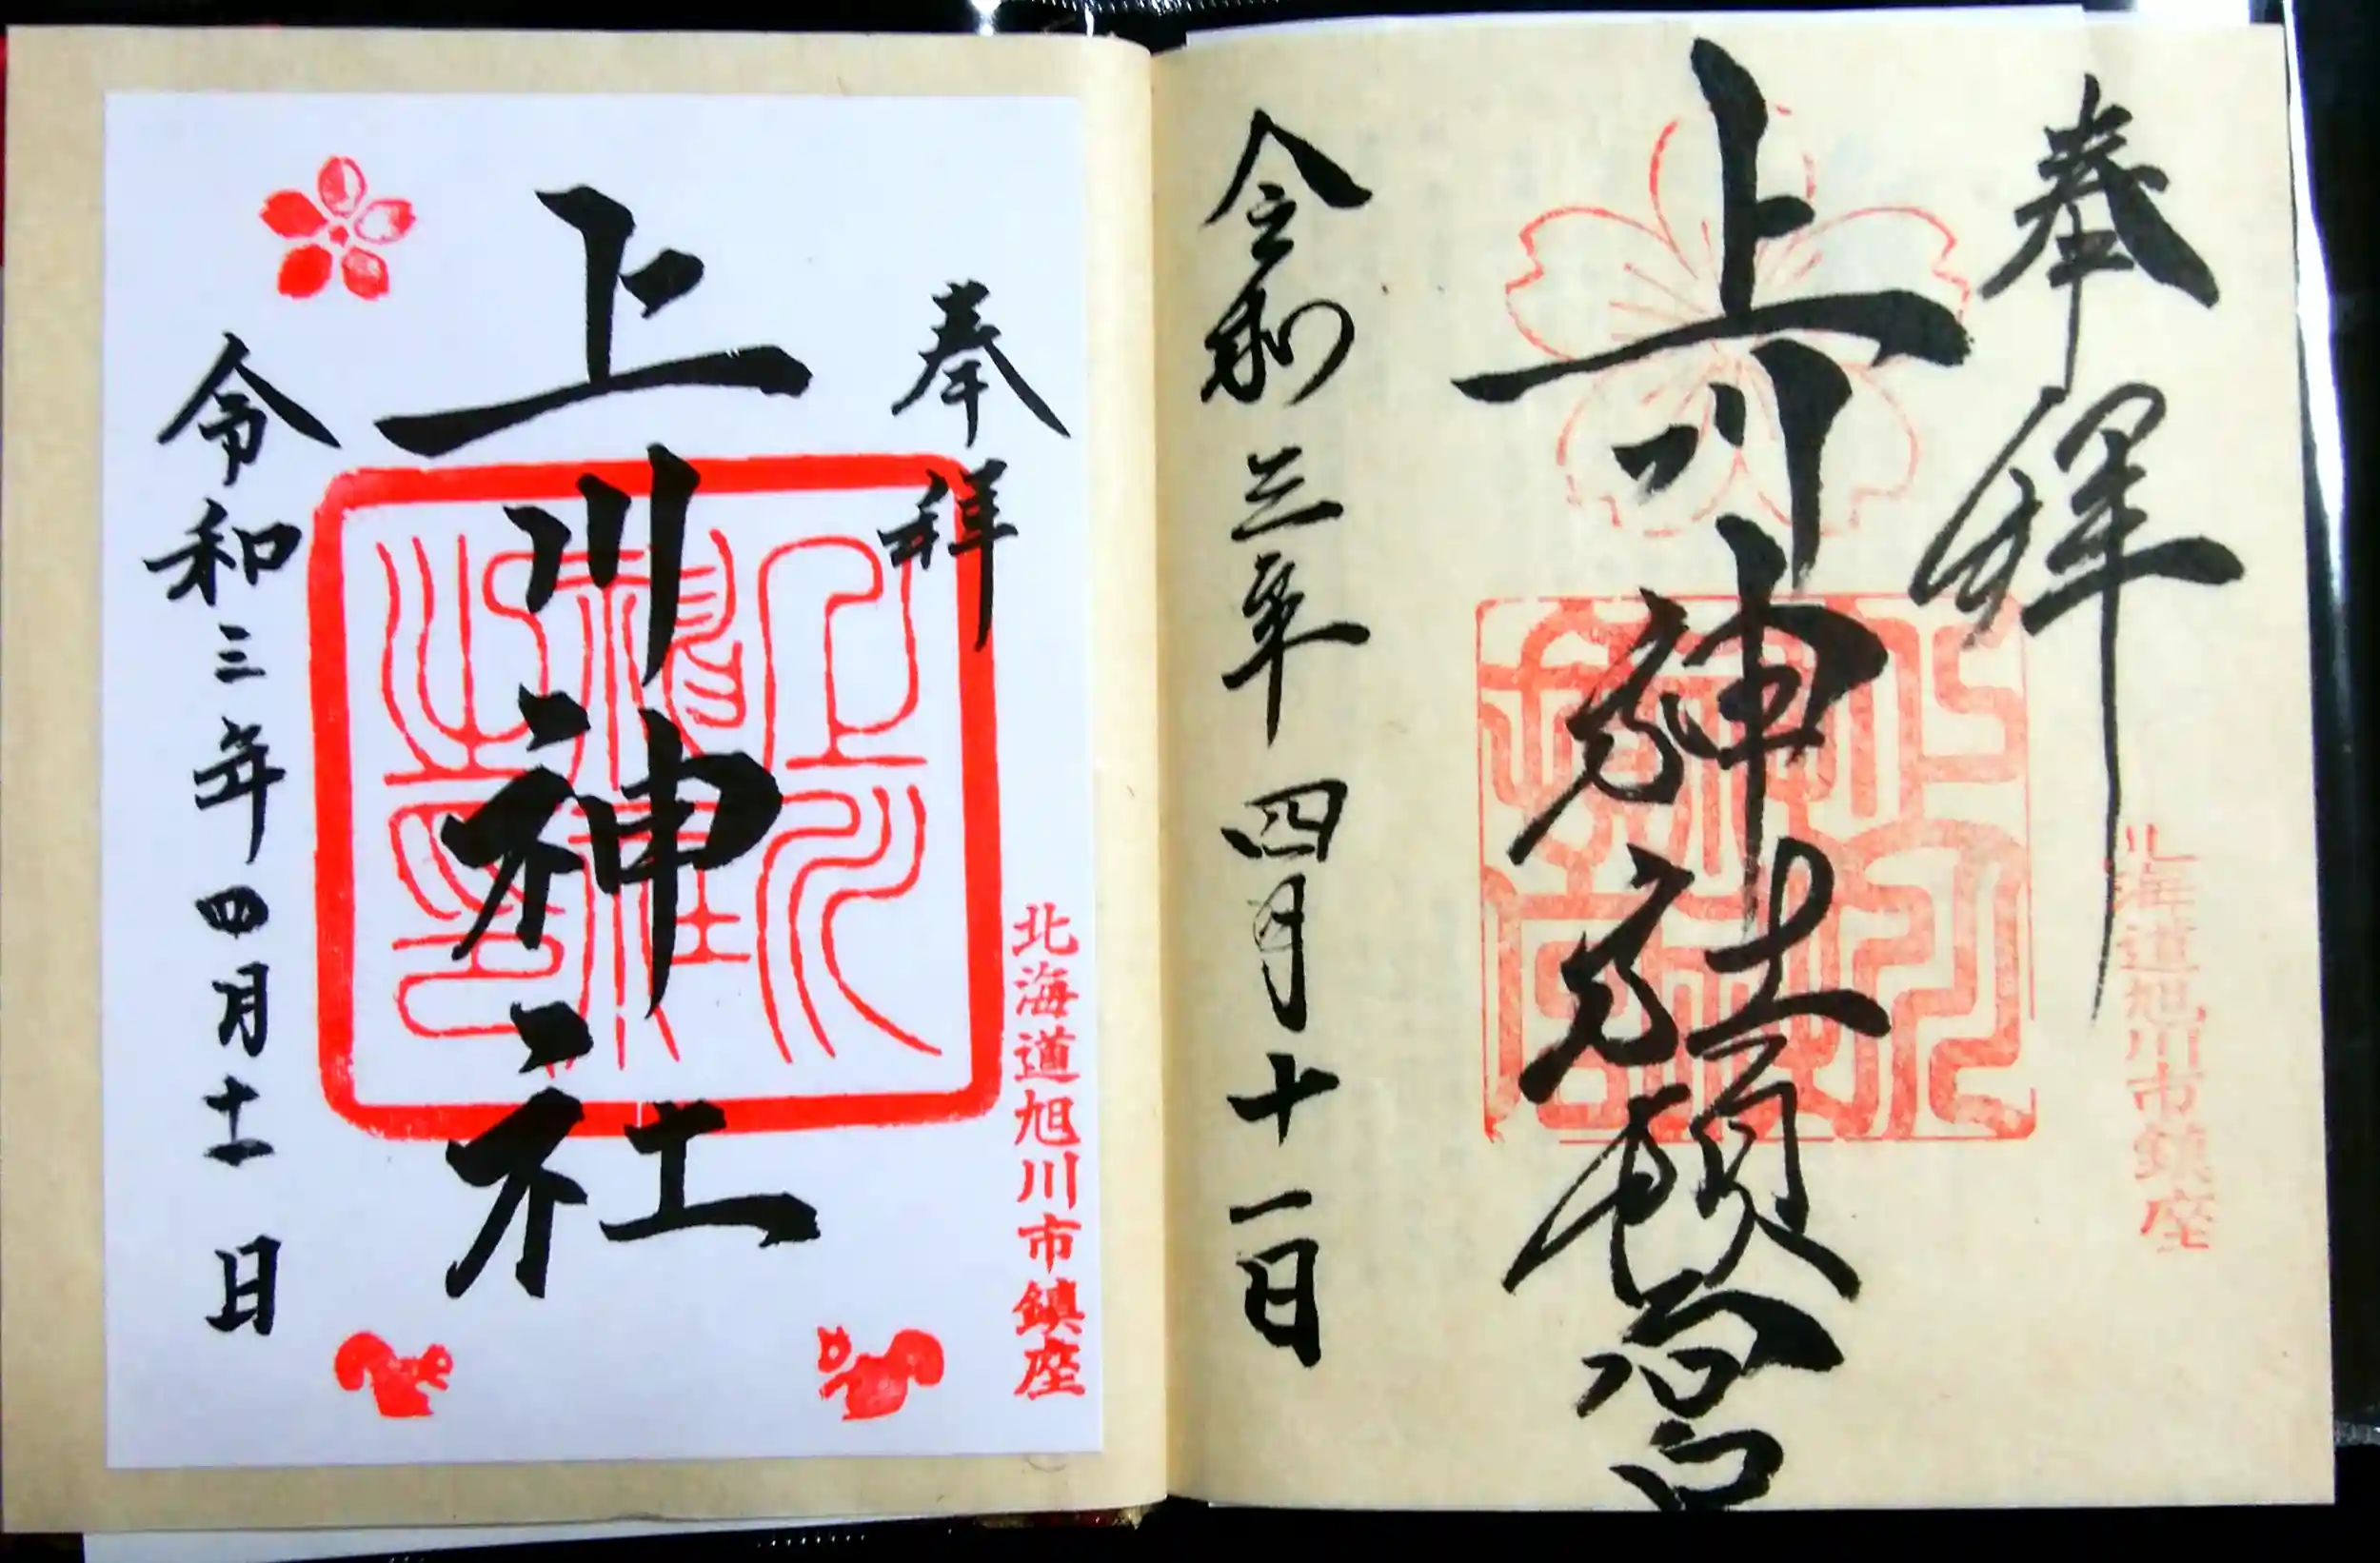 奉拝
北海道旭川市鎮座
上川神社頓宮
令和三年四月十一日
奉拝
北海道旭川市鎮座
上川神社
令和三年四月十一日